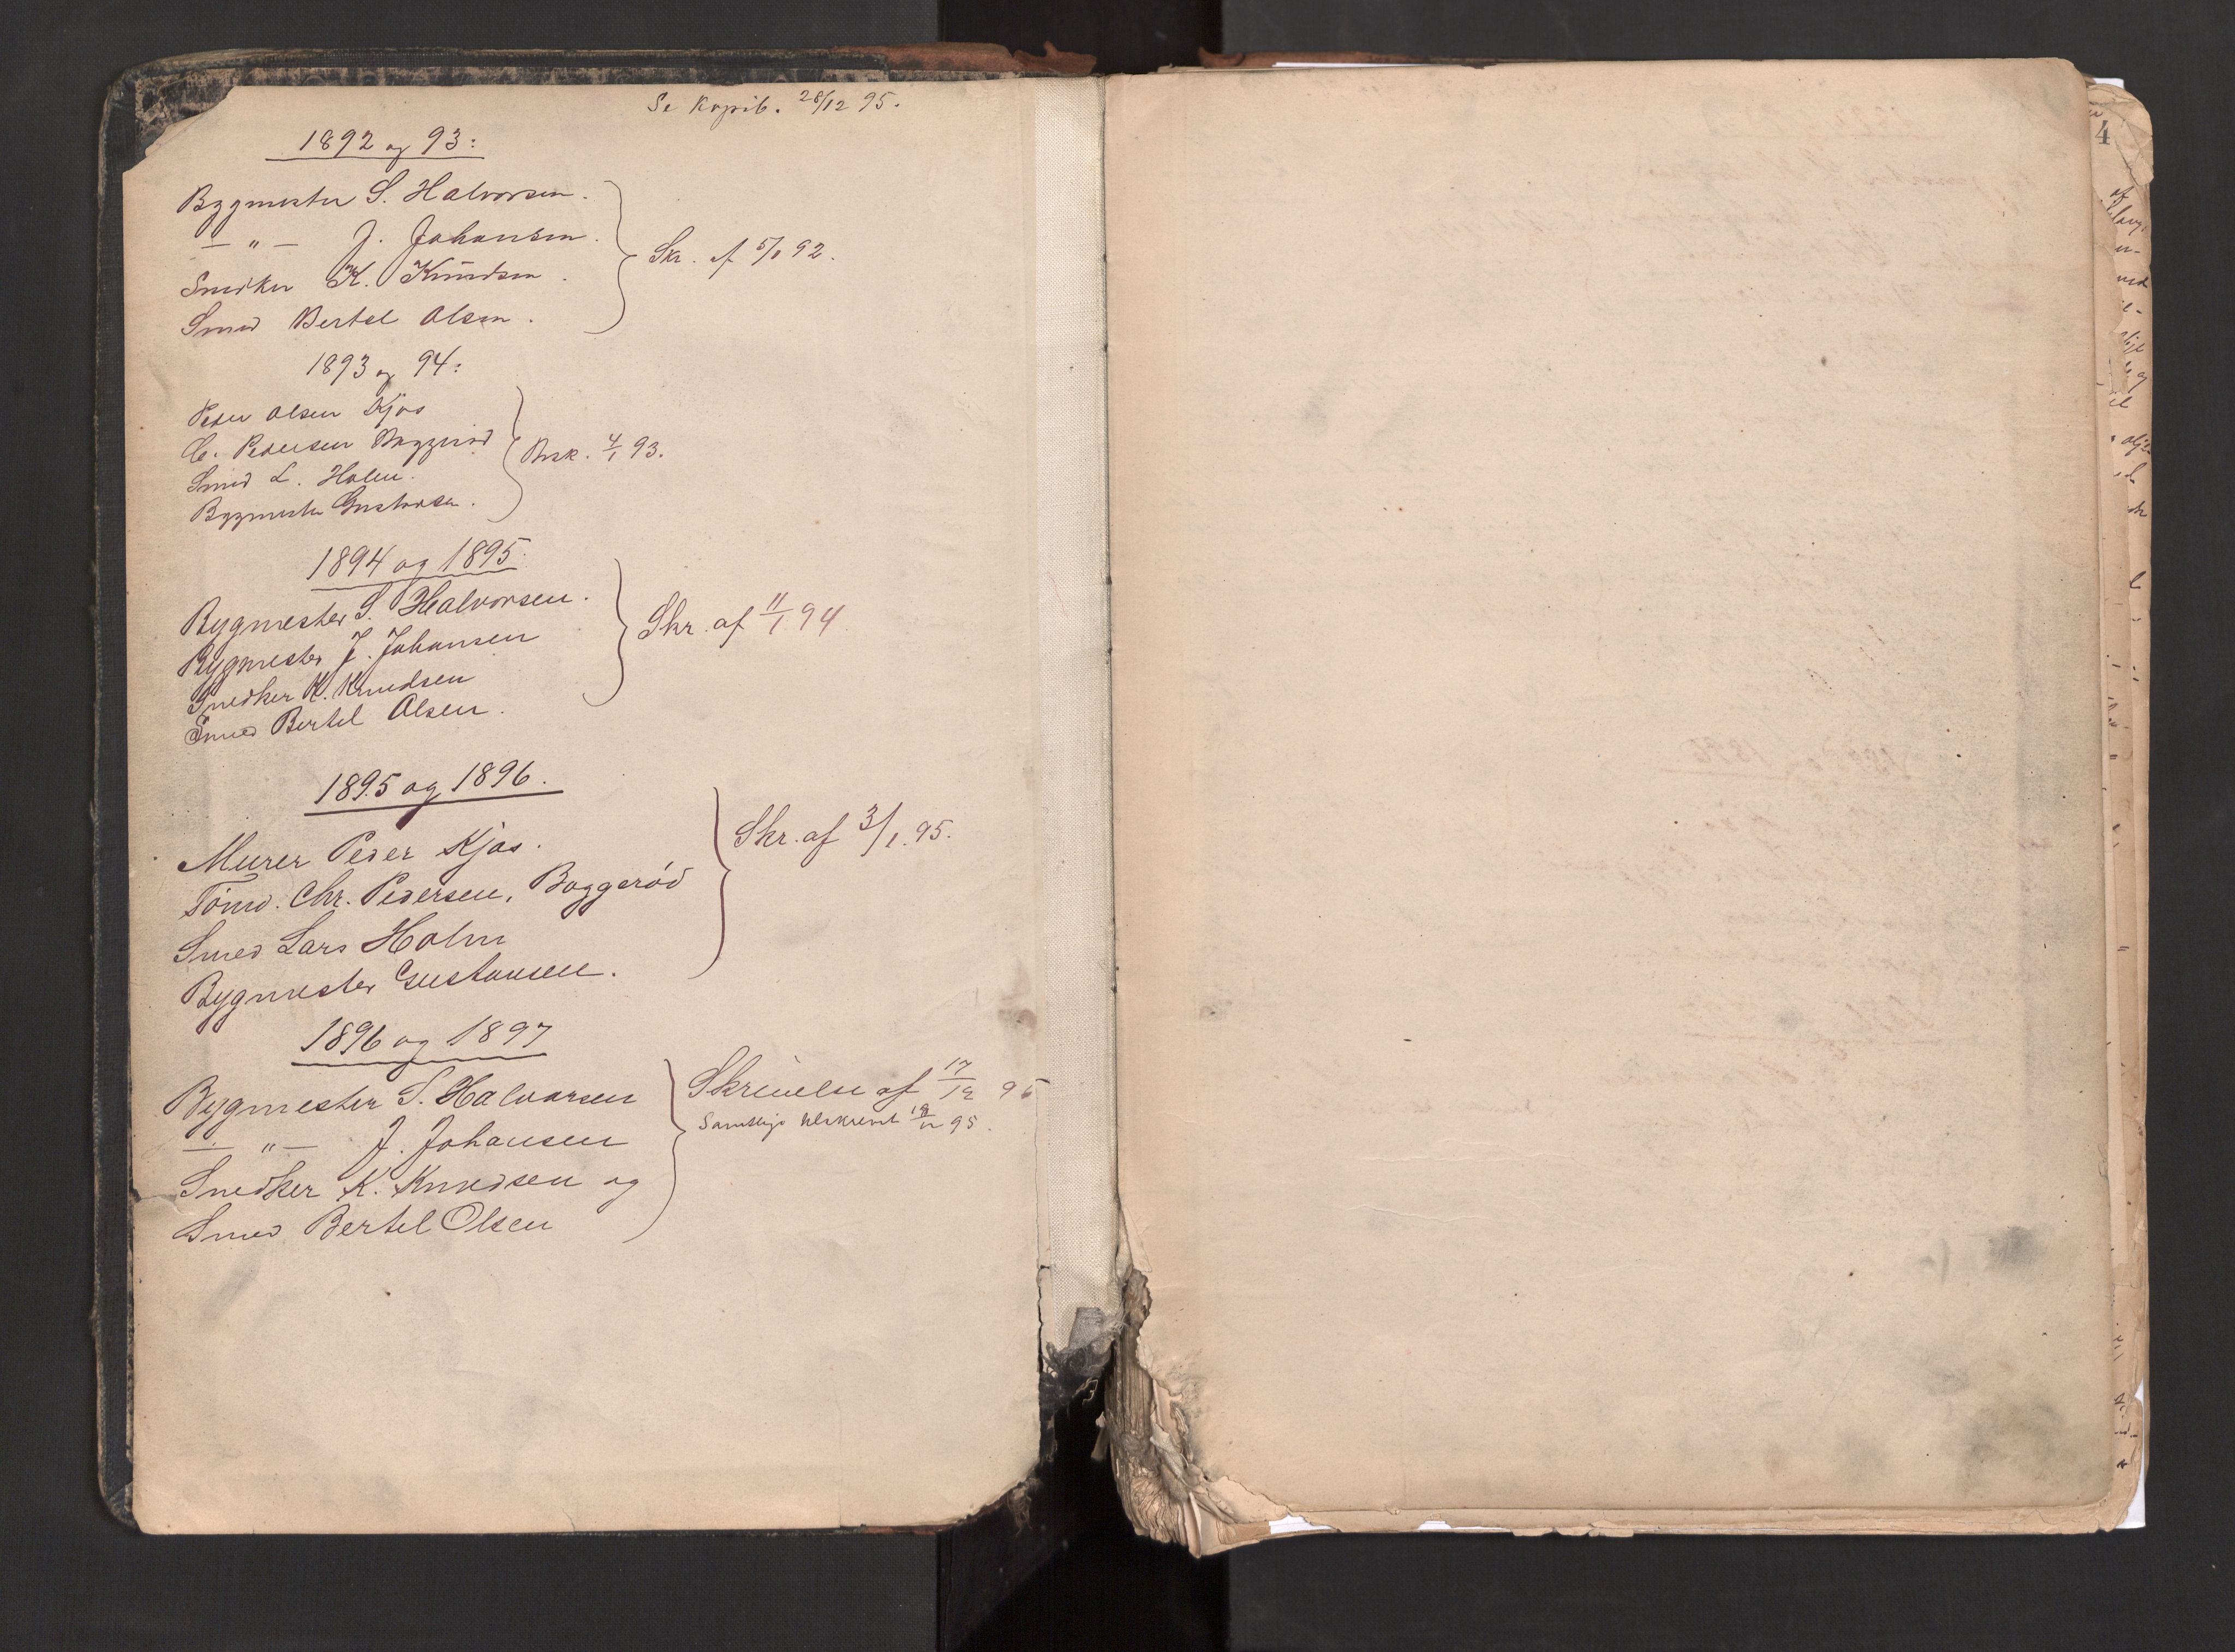 Se Kopib. 28/12 95.
1892 og 93:
Bygmester S. Halvorsen.
— " — J. Johansen.
Snedker K. Knudsen.
Smed Bertel Olsen.
Skr. af 5/1 92.
1893 og 94:
Peder Olsen Kjos
C. Pedersen Boggerød
Smed L. Holm.
Bygmester Gustavsen.
Besk. 4/1 93.
1894 og 1895.
Bygmester S. Halvorsen.
Bygmester J. Johansen
Snedker K. Knudsen
Smed Bertel Olsen.
Skr. af 11/1 94
1895 og 1896.
Murer Peder Kjos.
Tømd. Chr. Pedersen, Boggerød
Smed Lars Holm
Bygmester Gustavsen.
Skr. af 3/1. 95.
1896 og 1897
Bygmester S. Halvorsen
— " — J. Johansen
Snedker K. Knudsen og
Smed Bertel Olsen
Skrivelse af 17/12 95
Samtlige tilskrevet 19/12 95.
4